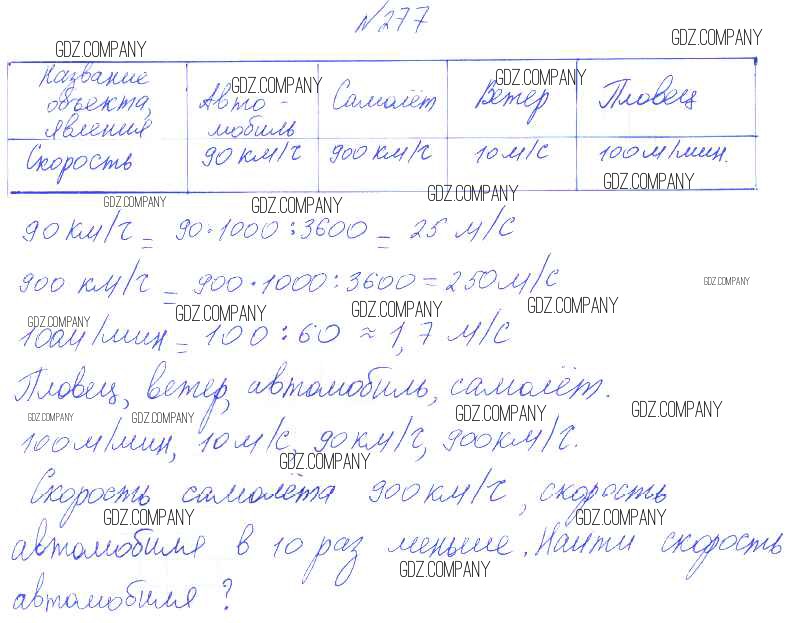 №277
GDZ.COMPANY
GDZ.COMPANY
Название объекта, явления
Авто-мобиль
GDZ.COMPANY
Самолёт
GDZ.COMPANY
Ветер
Пловец
Скорость 90 км/ч 900 км/ч 10 м/с 100 м/мин.
GDZ.COMPANY GDZ.COMPANY GDZ.COMPANY GDZ.COMPANY
90 км/ч = 90·1000:3600 = 25 м/с
900 км/ч = 900·1000:3600 = 250 м/с
GDZ.COMPANY GDZ.COMPANY GDZ.COMPANY GDZ.COMPANY GDZ.COMPANY
100м/мин = 100:60 ≈ 1,7 м/с
Пловец, ветер, автомобиль, самолёт.
GDZ.COMPANY GDZ.COMPANY GDZ.COMPANY GDZ.COMPANY
100м/мин, 10 м/с, 90км/ч, 900км/ч.
GDZ.COMPANY
Скорость самолёта 900км/ч, скорость
GDZ.COMPANY GDZ.COMPANY
автомобиля в 10 раз меньше. Найти скорость
GDZ.COMPANY
автомобиля?